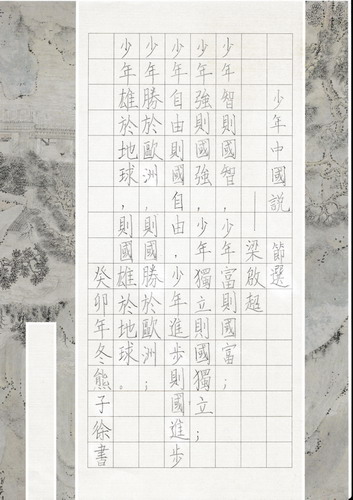 少年中國説 節選
——梁啟超
少年智則國智，少年富則國富；
少年強則國強，少年獨立則國獨立；
少年自由則國自由，少年進步則國進步
少年勝於歐洲，則國勝於歐洲；
少年雄於地球，則國雄於地球。
癸卯年冬熊子徐書